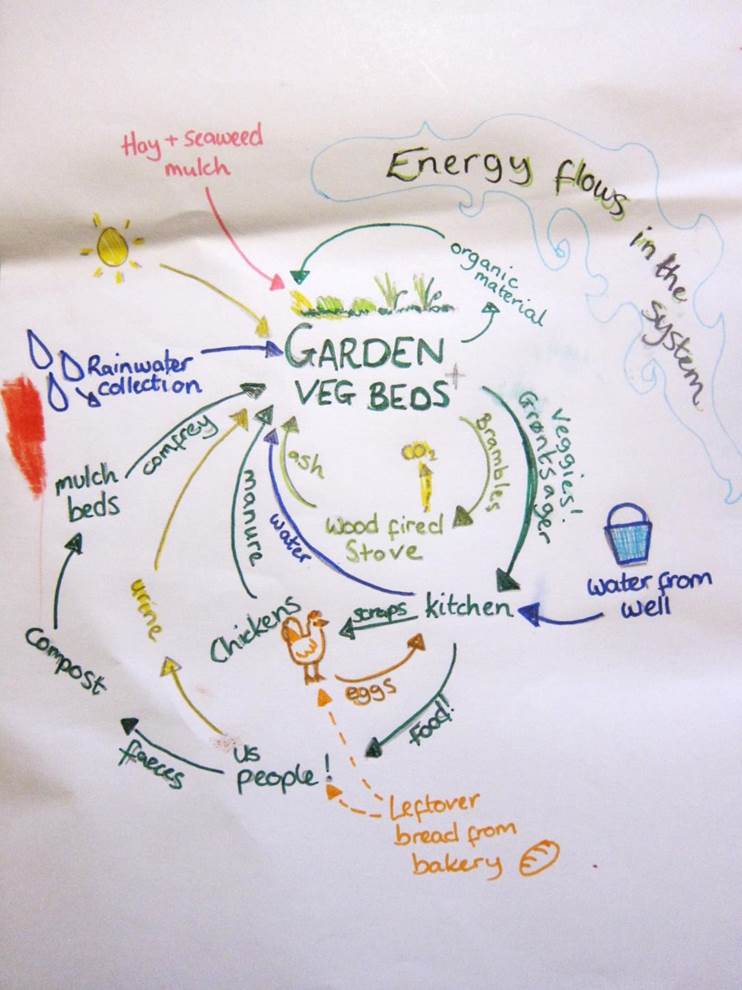 Energy flows in the system
Hay + seaweed
mulch
organic
material
Rainwater
collection
GARDEN
VEG BEDS
Veggies!
Grøntsager
Brambles
CO₂
ash
Wood fired
Stove
comfrey
mulch
beds
manure
water
urine
water from
well
Chickens
scraps
kitchen
eggs
Food!
compost
faeces
us
people!
Leftover
bread from
bakery